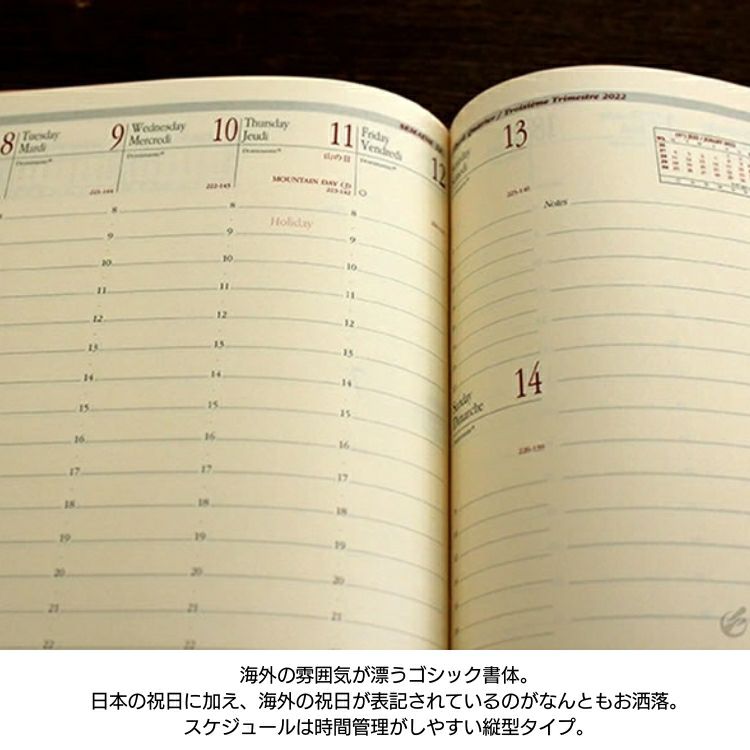 Quarter / Troisième Trimestre 2022
8 Tuesday Mardi
9 Wednesday Mercredi
10 Thursday Jeudi
11 Friday Vendredi
12
Dominante
Dominante
Dominante
Dominante
山の日
MOUNTAIN DAY
221-144
222-143
223-142
Holiday
8 8 8
9 9 9
10 10 10
11 11 11
12 12 12
13 13 13
14 14 14
15 15 15
16 16 16
17 17 17
18 18 18
19 19 19
20 20 20
21 21 21
22 22
13
225-140
Notes
14
Dimanche
海外の雰囲気が漂うゴシック書体。
日本の祝日に加え、海外の祝日が表記されているのがなんともお洒落。
スケジュールは時間管理がしやすい縦型タイプ。